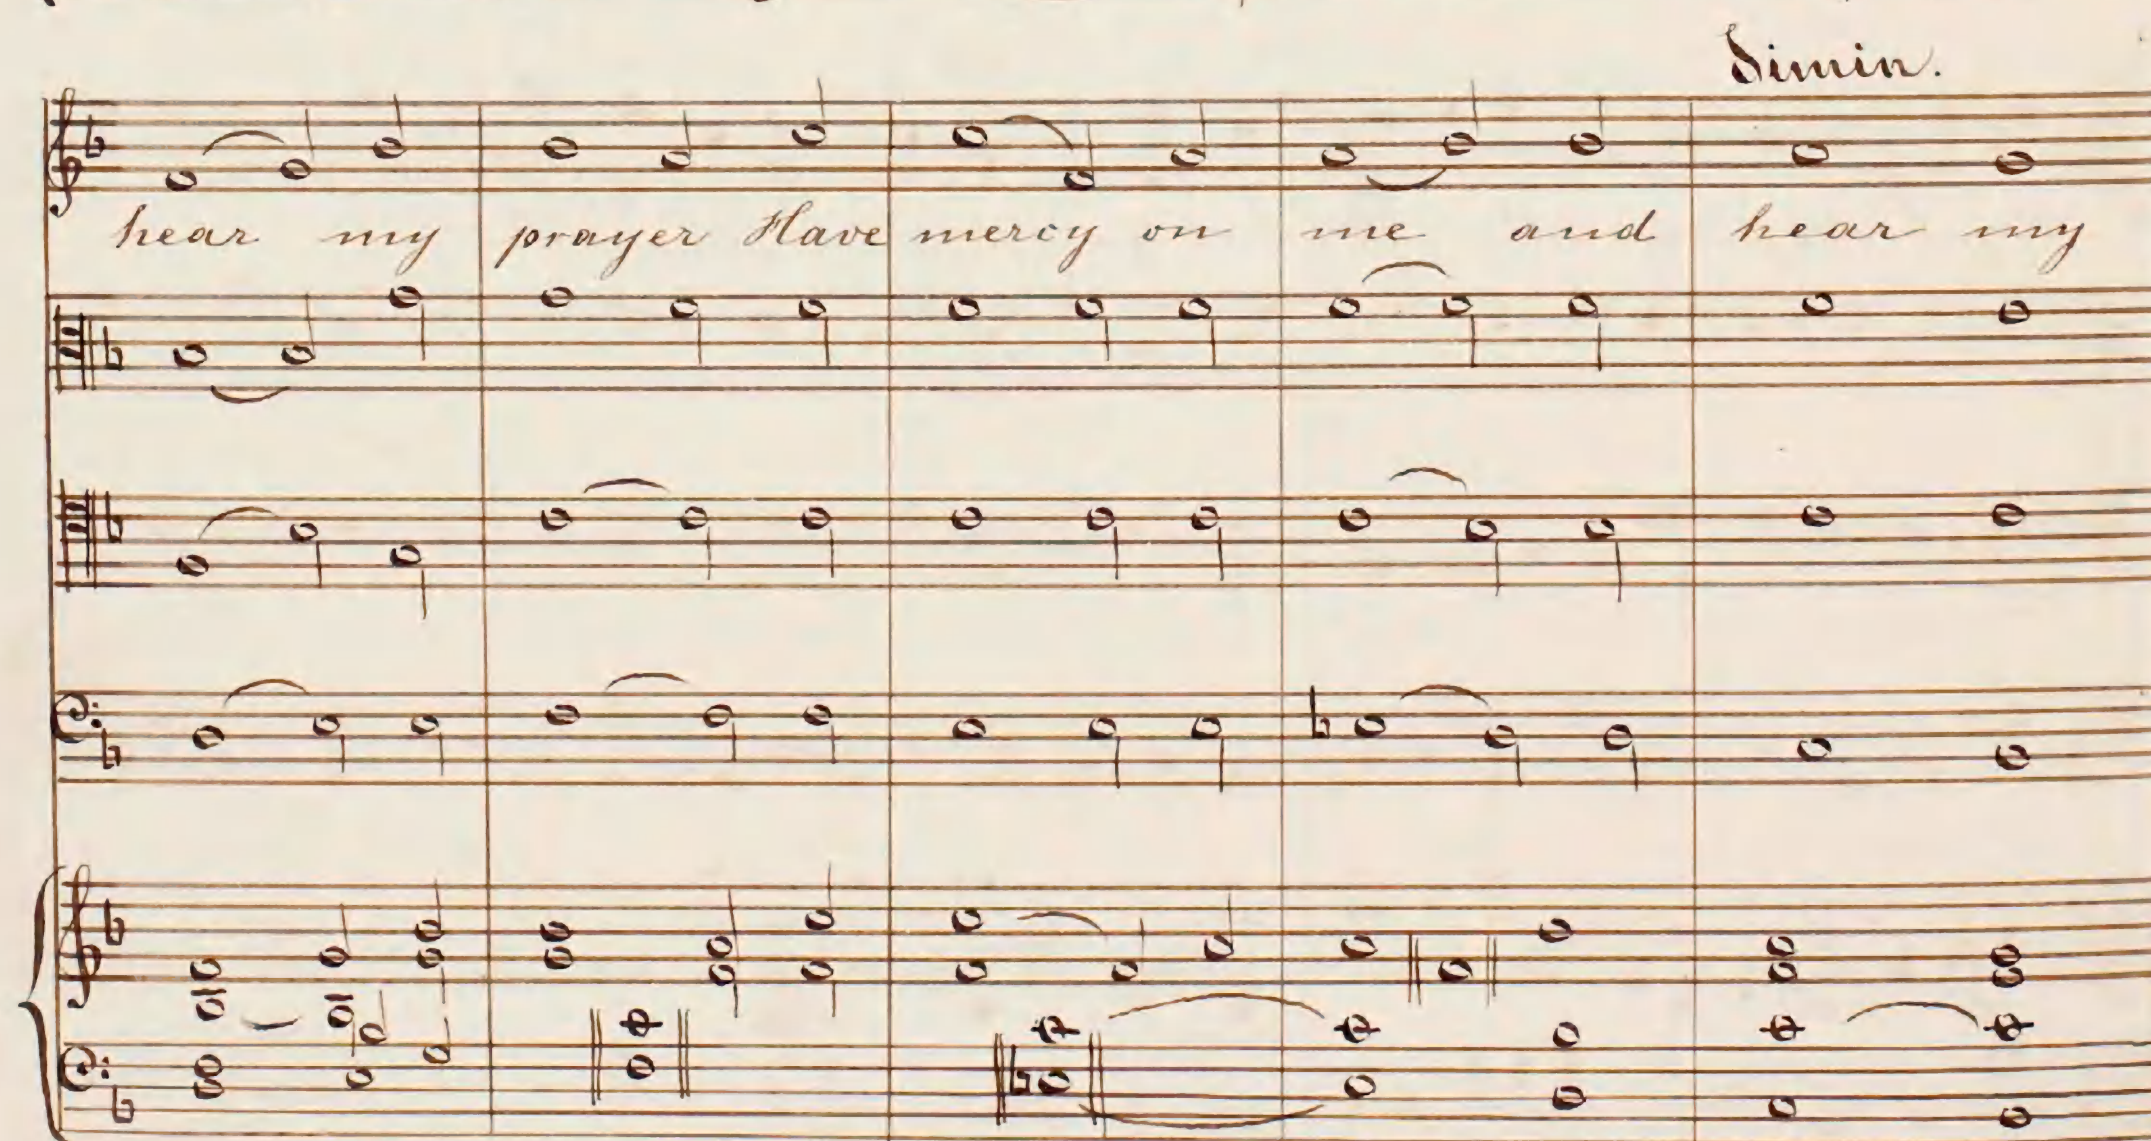 Dimin.
hear my prayer Have mercy on me and hear my